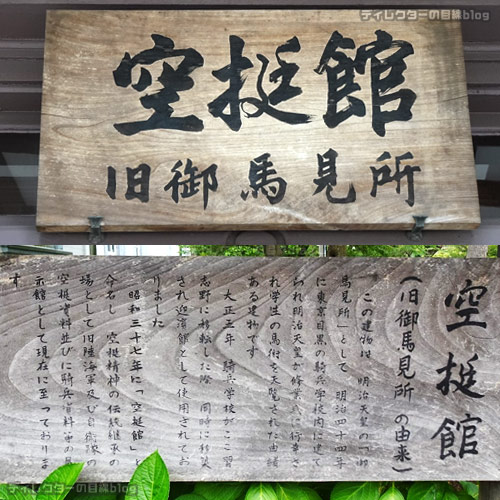 ディレクターの目線blog
空挺館
旧御馬見所
空挺館
(旧御馬見所の由来)
この建物は 明治天皇の「御
馬見所」として 明治四十四年
に東京目黒の騎兵学校内に建て
られ明治天皇が修業式に行幸さ
れ学生の馬術を天覧された由緒
ある建物です
大正五年 騎兵学校がここ習
志野に移転した際 同時に移築
され迎賓館として使用されてお
りました
昭和三十七年に「空挺館」と
命名し 空挺精神の伝統継承の
場として旧陸海軍及び自衛隊の
空挺資料並びに騎兵資料等の展
示館として現在に至っておりま
す
ディレクターの目線blog